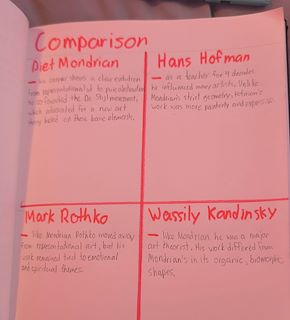 Comparison
Piet Mondrian
— his career shows a clear evolution
from representational art to pure abstraction
he co-founded the De Stijl movement,
which advocated for a new art
based on these basic elements.
Hans Hofman
— as a teacher for 4 decades
he influenced many artists. Unlike
Mondrian's strict geometry, Hofman's
work was more painterly and expressive.
Mark Rothko
— like Mondrian Rothko moved away
from representational art, but his
work remained tied to emotional
and spiritual themes.
Wassily Kandinsky
— Like Mondrian, he was a major
art theorist. His work differed from
Mondrian's in its organic, biomorphic
shapes.